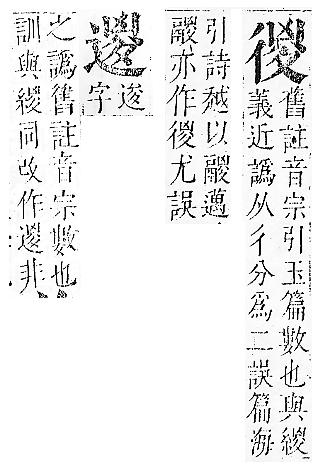 㣭
舊註音宗引玉篇數也與緵
義近譌从彳分爲二誤篇海
引詩越以鬷邁
鬷亦作㣭尤誤
字
之譌舊註音宗數也
訓與緵同改作非